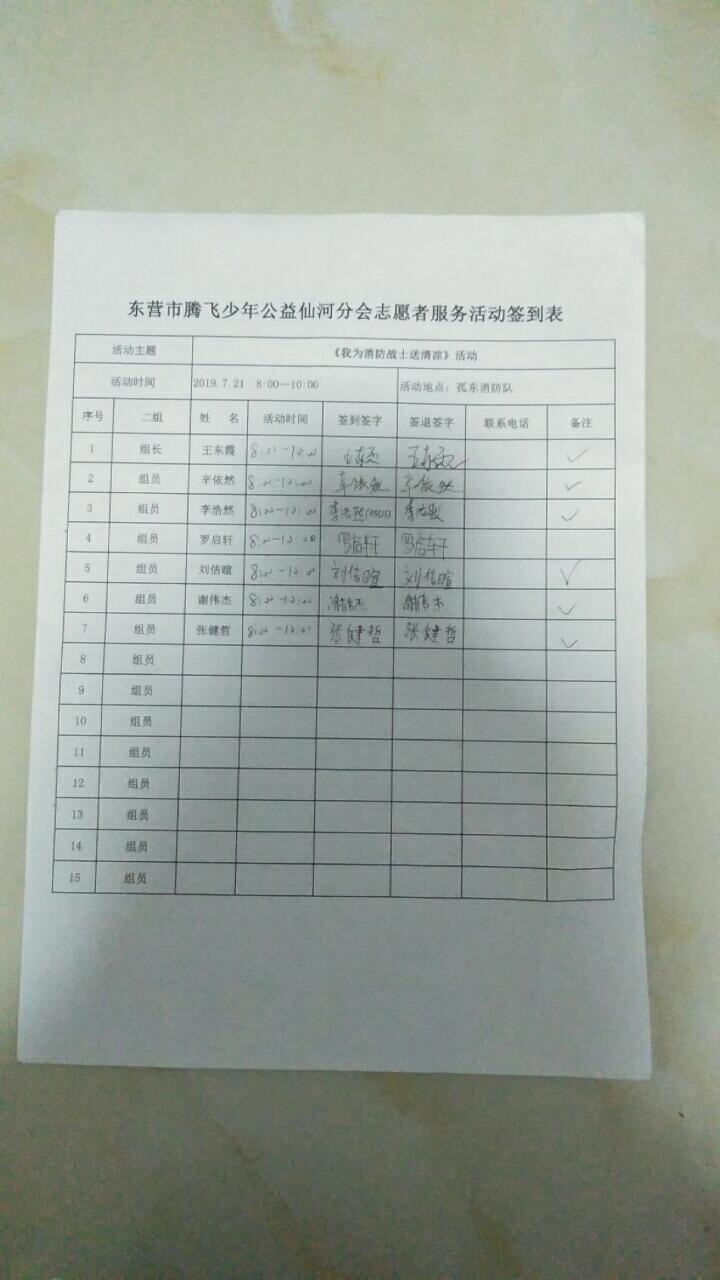 东营市腾飞少年公益仙河分会志愿者服务活动签到表
活动主题 《我为消防战士送清凉》活动
活动时间 2019.7.21 8:00—10:00 活动地点：孤东消防队
序号 二组 姓 名 活动时间 签到签字 签退签字 联系电话 备注
1 组长 王东霞 8:00-10:00 王东霞 王东霞 ✓
2 组员 辛依然 8:00-10:00 辛依然 辛依然 ✓
3 组员 李浩然 8:00-10:00 李浩然 李浩然 ✓
4 组员 罗启轩 8:00-10:00 罗启轩 罗启轩
5 组员 刘佶暄 8:00-10:00 刘佶暄 刘佶暄 ✓
6 组员 谢伟杰 8:00-10:00 谢伟杰 谢伟杰 ✓
7 组员 张健哲 8:00-10:00 张健哲 张健哲 ✓
8 组员
9 组员
10 组员
11 组员
12 组员
13 组员
14 组员
15 组员